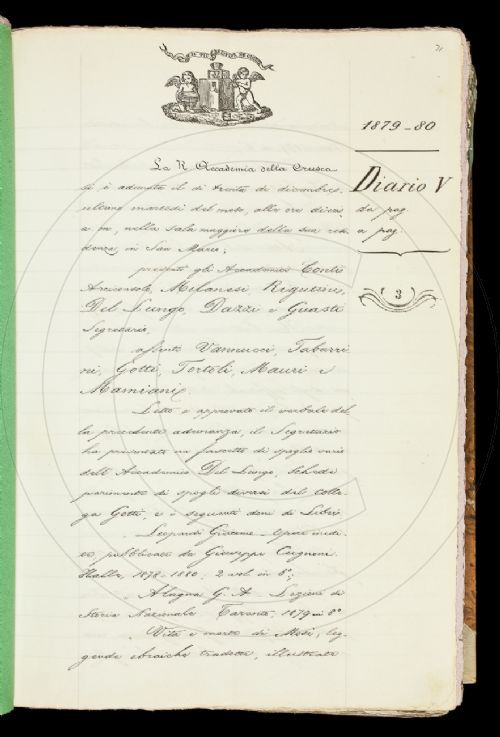 71
1879-80
Diario V
da pag
a pag
3
La R. Accademia della Crusca
si è adunata il dì trenta di dicembre,
ultimo martedì del mese, alle ore dieci
a. m., nella sala maggiore della sua resi
denza, in San Marco;
presenti gli Accademici Conti
Arciconsolo, Milanesi, Rigutini,
Del Lungo, Dazzi e Guasti
Segretario,
assenti Vannucci, Tabarri
ni, Gotti, Tortoli, Mauri e
Mamiani.
Letto e approvato il verbale del
la precedente adunanza, il Segretario
ha presentato un fascetto di spogli varii
dell'Accademico Del Lungo, Schede
parimente di spogli diversi del Colle
ga Gotti, e i seguenti doni di Libri
Leopardi Giacomo - Opere inedi
te, pubblicate da Giuseppe Cugnoni.
Halle, 1878-1880, 2 vol. in 8°;
Alagna G. A. - Lezioni di
Storia Nazionale. Taranto, 1879 in 8°
Vita e morte di Mosè, leg
gende ebraiche tradotte, illustrate